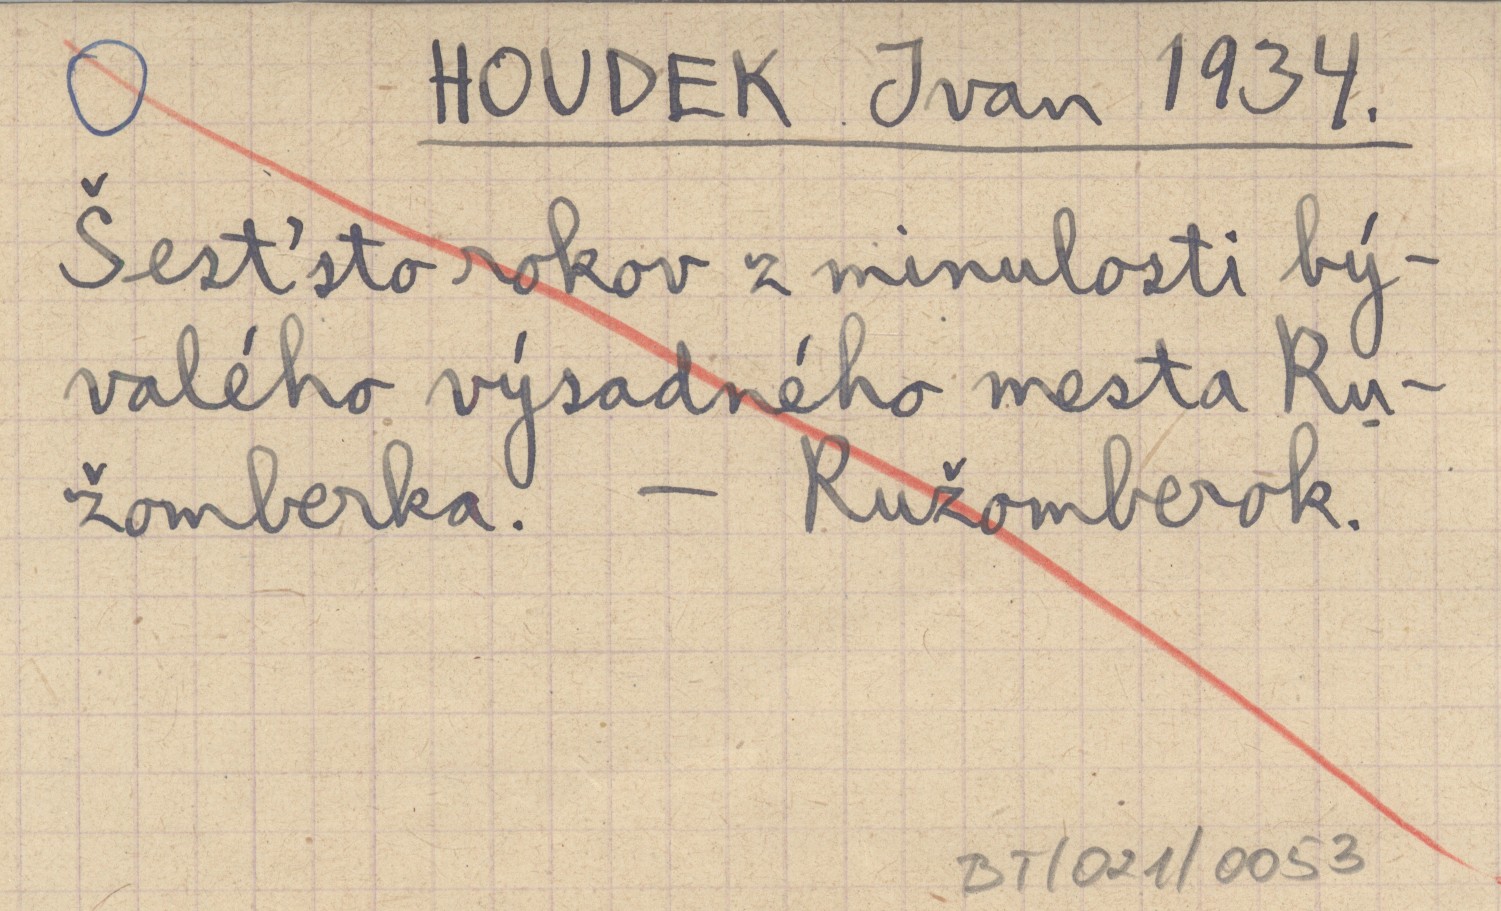 HOUDEK Ivan 1934.
Šesťsto rokov z minulosti bý-
valého výsadného mesta Ru-
žomberka. — Ružomberok.
BT/021/0053